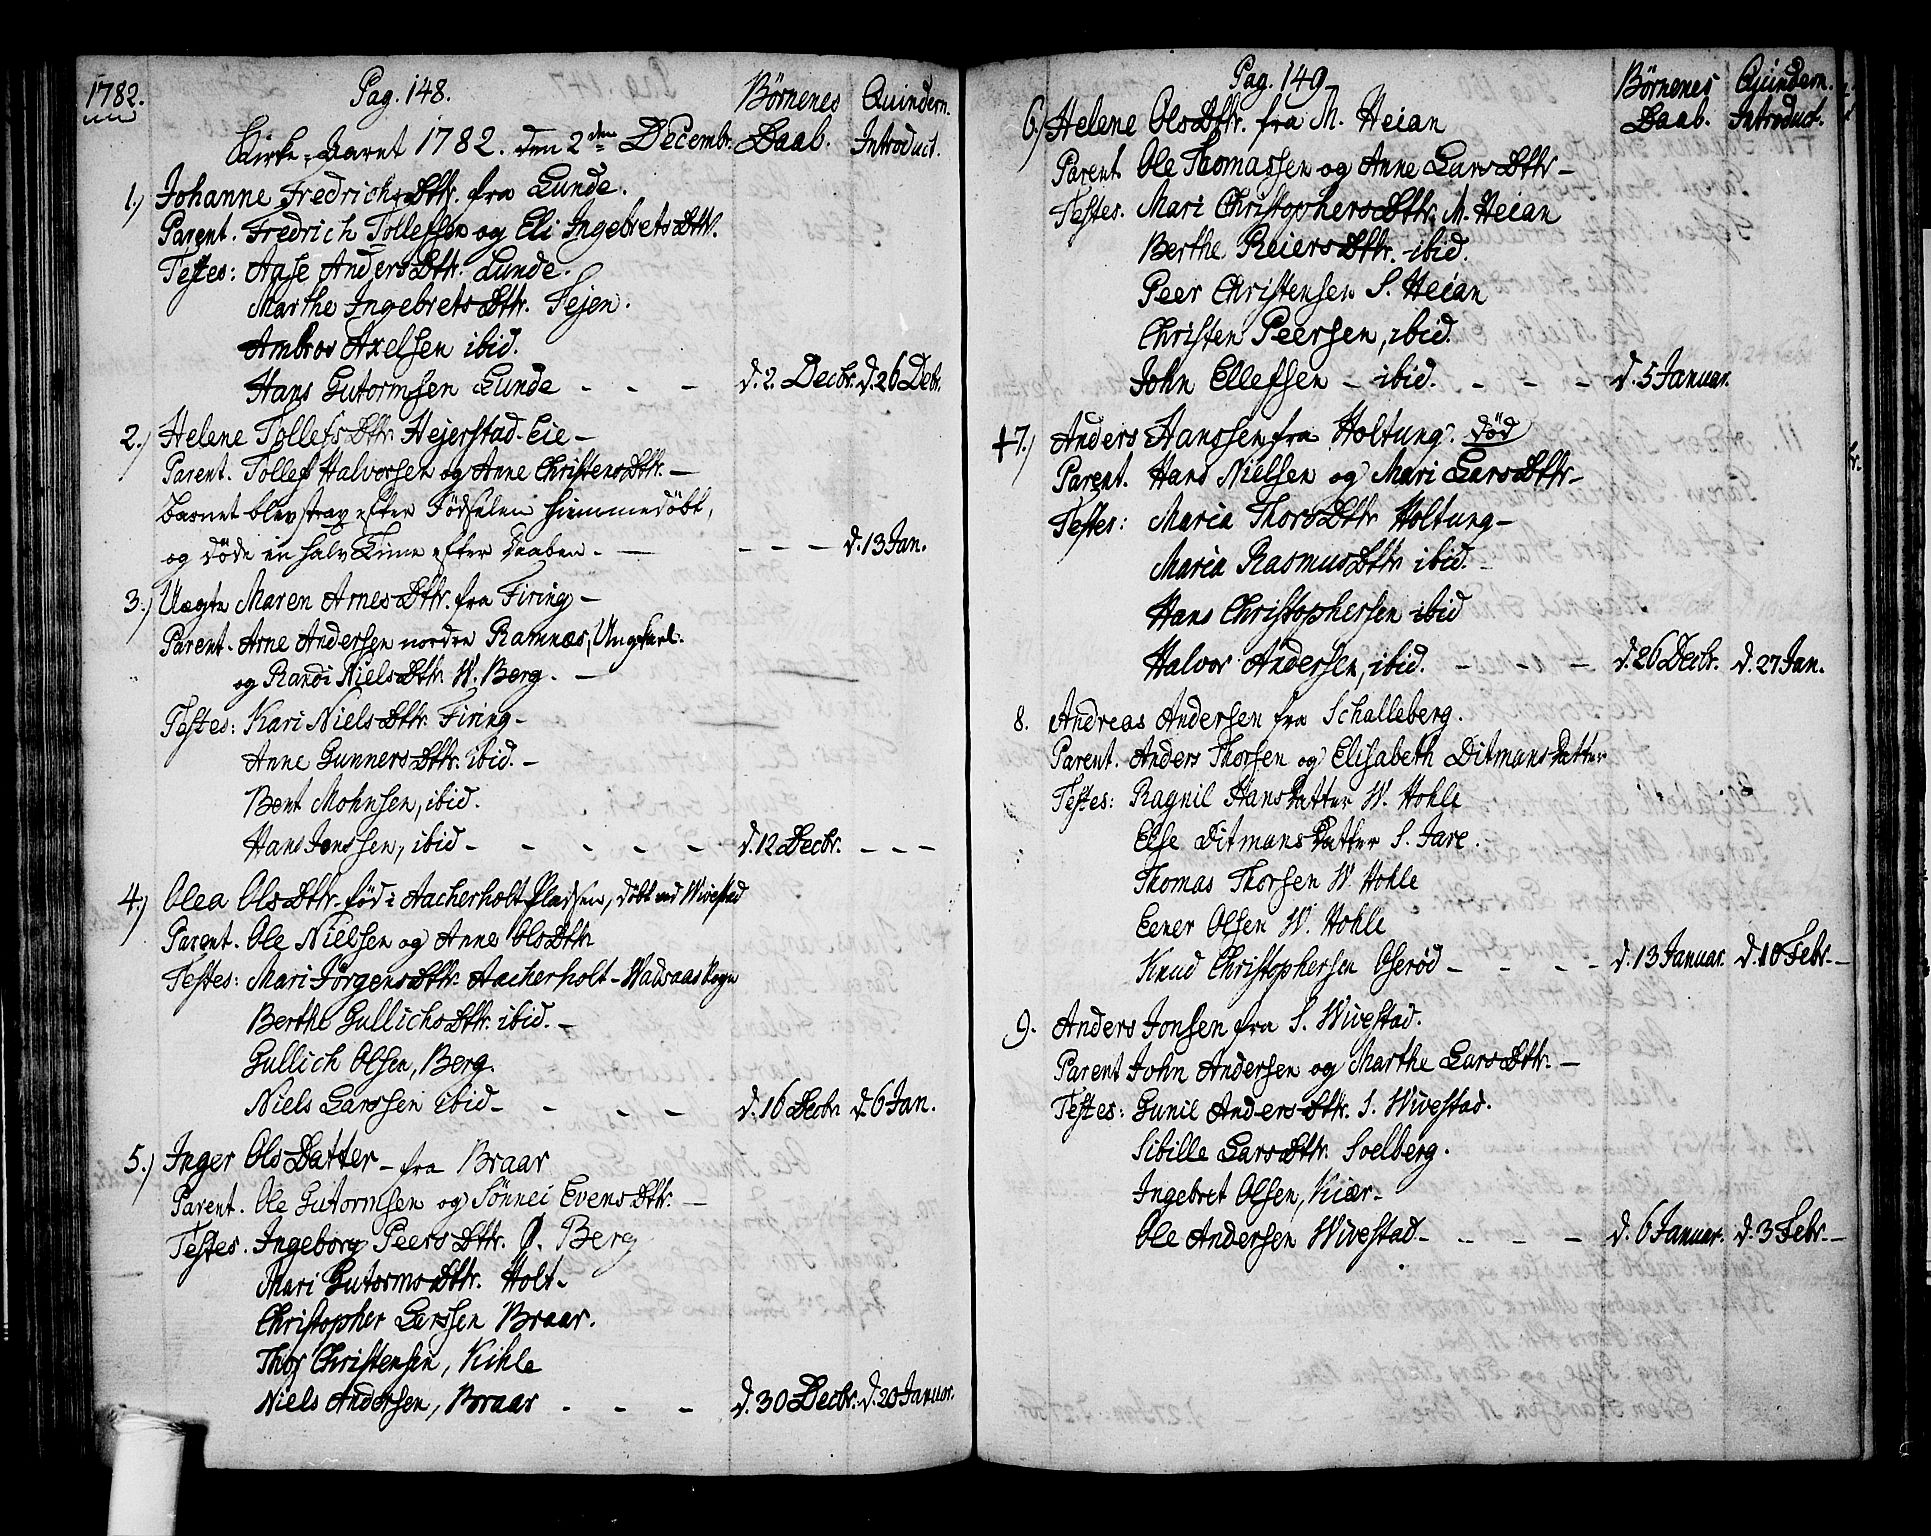 1782.
Pag. 148.
Börnenes Quindern.
Kirke-Aaret 1782. den 2den Decembr. Daab. Introduct.
1.) Johanne FredrichsDttr. fra Lunde.
Parent. Fredrich Tollefsen og Eli IngebretsDttr.
Testes: Aase AndersDttr. Lunde.
Marthe IngebretsDttr. Fejen.
Ambros Axelsen ibid.
Hans Gutormsen Lunde - - - d. 2. Decbr. d. 26 Debr.
2.) Helene TollefsDttr Hejerstad-Eie -
Parent. Tollef Halvorsen og Anne ChristensDttr. -
Barnet blev strax efter Födselen hiemmedöbt,
og döde en halv Time efter Daaben. - - - - d. 13 Jan.
3.) Uægte Maren ArnesDttr. fra Firing -
Parent. Arne Andersen nordre Ramnæs, Ungkarl.
og Randi NielsDttr. W. Berg. -
Testes: Kari NielsDttr. Firing -
Anne GunnersDttr. ibid. -
Bent Mohnsen, ibid.
Hans Jonssen, ibid - - - - - d. 12 Decbr. - - -
4.) Olea OlsDttr. föd i Aacherholt Pladsen, döbt ved Wivestad
Parent. Ole Nielsen og Anne OlsDttr
Testes: Mari JörgensDttr. Aacherholt - Wadsaas Sogn
Berthe GullichsDttr. ibid. -
Gullich Olsen, Berg.
Niels Larssen ibid - - - - d. 16 Decbr d. 6 Jan.
5.) Inger OlsDatter - fra Braar
Parent. Ole Gutormsen og Sönnei EvensDttr. -
Testes. Ingeborg PeersDttr. Ö. Berg
Mari GutormsDttr. Holt -
Christopher Lerssen Braar.
Thor Christensen, Kihle
Niels Andersen, Braar - - - d. 30 Decbr. d. 20 Januar.
Pag. 149
Börnenes Quindern.
Daab. Introduct.
6.) Helene OlsDttr. fra M. Heian
Parent. Ole Thomassen og Anne LarsDttr -
Testes. Mari ChristophersDttr. M. Heian
Berthe ReiersDttr. ibid.
Peer Christensen S. Heian
Christen Peersen, ibid.
John Ellefsen - ibid. - - - d. 5 Januar.
†7.) Anders Hanssen fra Holtung. död
Parent. Hans Nielsen og Mari LarsDttr -
Testes: Maria ThorsDttr Holtung -
Maria RasmusDttr ibid. -
Hans Christophersen ibid
Halvor Andersen, ibid. - - - d. 26 Decbr. d. 27 Jan.
8. Andreas Andersen fra Schalleberg.
Parent. Anders Thorsen og Elisabeth Ditmans Datter
Testes: Ragnil HansDatter W. Hohle
Else DitmansDatter S. Jare.
Thomas Thorsen W. Hohle
Eener Olsen W. Hohle
Knud Christophersen Oserød - - - - d. 13 Januar. d. 10 Febr. -
9. Anders Jonsen fra S. Wivestad.
Parent John Andersen og Marthe LarsDttr. -
Testes: Gunil AndersDttr. S. Wivestad.
Sibille LarsDttr. Soelberg.
Ingebret Olsen, Kiær -
Ole Andersen Wivestad - - - - d. 6 Januar. d. 3 Febr. -